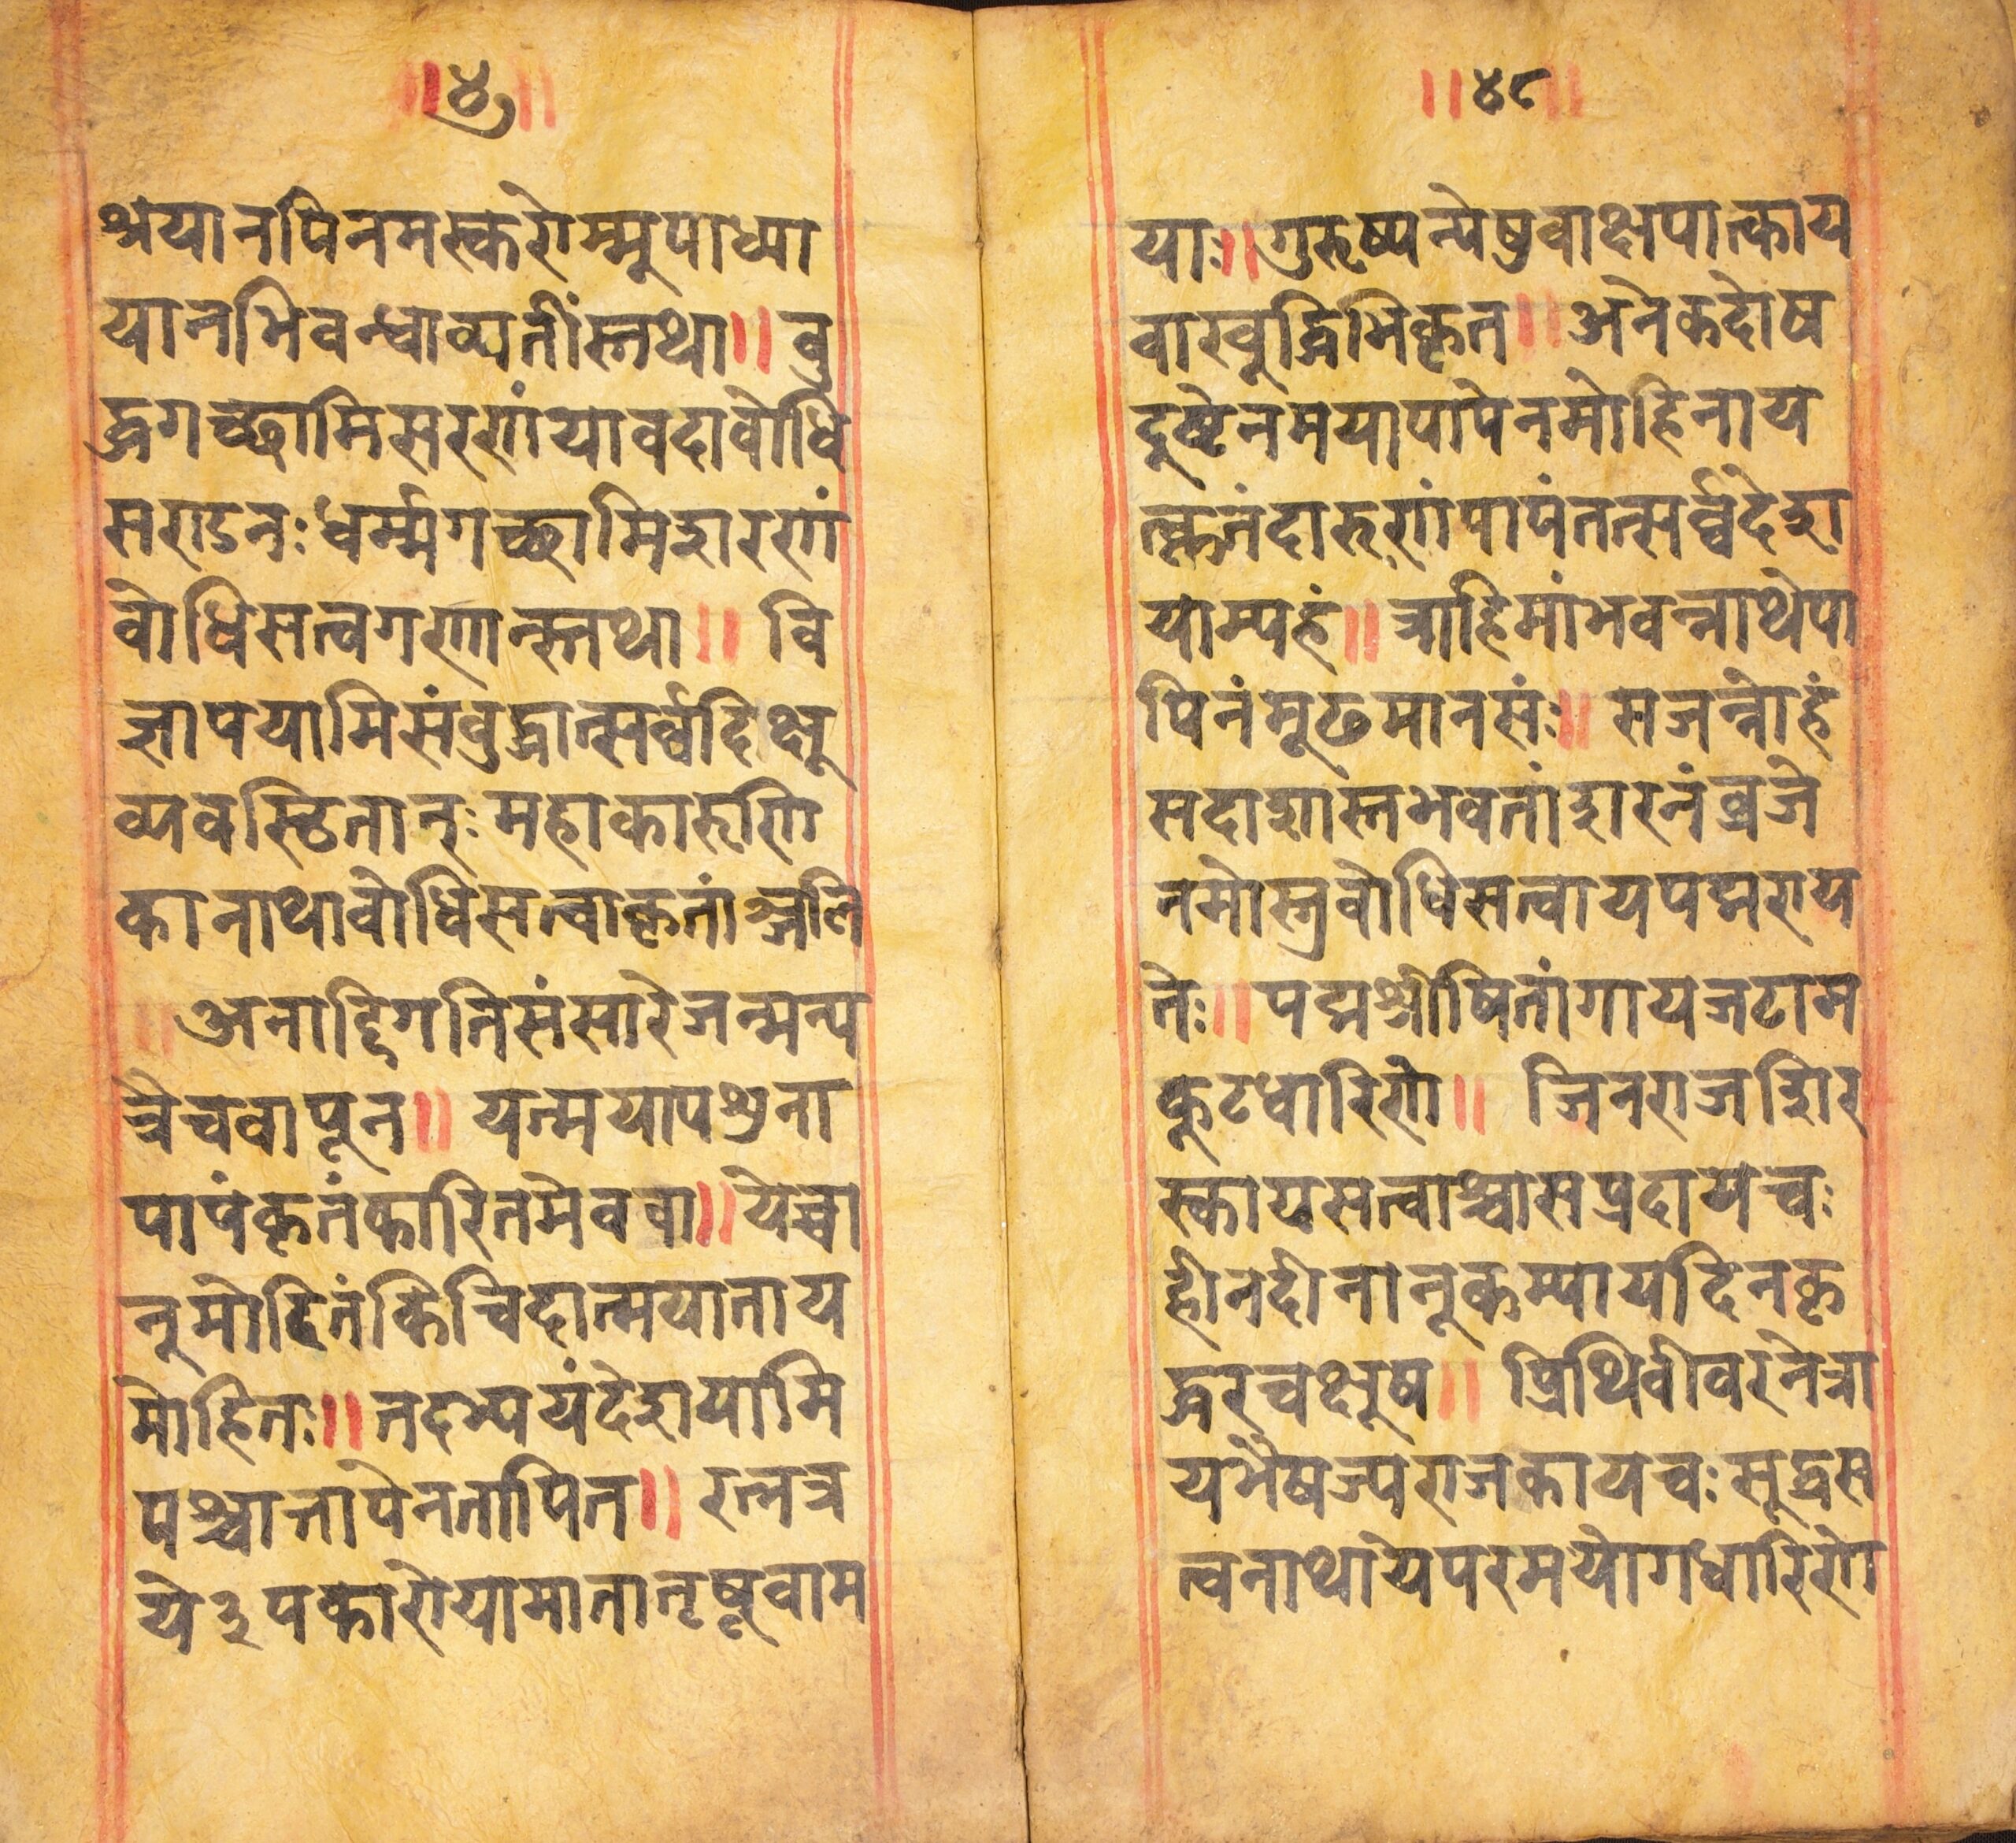 ॥४७॥
श्रयानपिनमस्करोम्मुपाध्या
यानभिवन्धाव्यतींस्तथा॥वु
द्धगच्छामिसरणंयावदावोधि
सराऽनः धर्म्मगच्छामिशरणं
वोधिसत्वगणान्स्तथा॥वि
ज्ञापयामिसंवुद्धान्सर्व्वदिक्षू
व्यवस्ठितानः महाकारूणि
कानाथावोधिसत्वाकृतांञ्जलि
॥अनाद्दिगतिसंसारेजन्मन्य
त्रैचवापून॥यन्मयापशुना
पापंकृतंकारितमेववा॥येच्चा
नुमोदितंकिंचिदात्मयाताय
मोहितः॥तदभ्ययंदेशयामि
पश्चात्तापेनतापित॥रत्नत्र
ये३पकारोयामातातृषूवाम
॥४८॥
याः॥गुरूष्यन्येषुवाक्षपात्काय
वाखवुद्धिभिकृत॥अनेकदोष
दुष्टेनमयापापेनमोहिनाय
त्कृतंदारुणंपापंतत्सर्व्वंदेशा
याम्यहं॥त्राहिमांभवन्नाथेपा
पिनंमूढमानसंः॥सजन्नोहं
सदाशास्तभवतांशरनंव्रजे
नमोस्तुवोधिसत्वायपद्मराय
तेः॥पद्मश्रीषितांगायजटाम
कूटधारिणे॥जिनराजशिर
स्कायसत्वाश्वासप्रदायेचः
हीनदीनानूकम्पायदिनकृ
द्धरचक्षूष॥प्रिथिवीवरनेत्रा
यभैषज्यराजकायचः सूद्धस
त्वनाथायेपरमयोगधारिणे